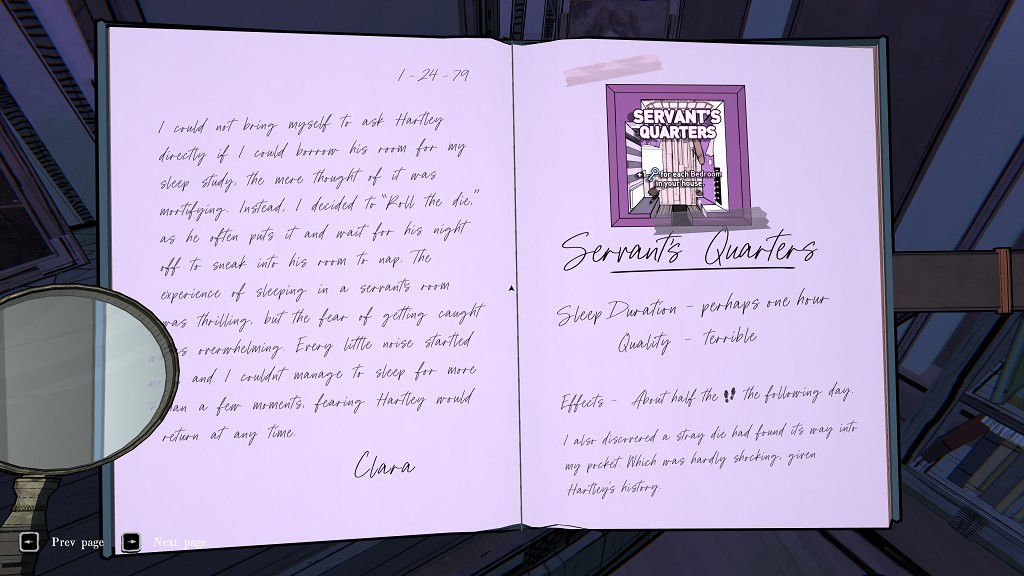 1-24-79
I could not bring myself to ask Hartley
directly if I could borrow his room for my
sleep study, the mere thought of it was
mortifying. Instead, I decided to "Roll the die,"
as he often puts it and wait for his night
off to sneak into his room to nap. The
experience of sleeping in a servants room
was thrilling, but the fear of getting caught
overwhelming. Every little noise startled
and I couldnt manage to sleep for more
a few moments, fearing Hartley would
return at any time.
Clara
SERVANT'S
QUARTERS
+1 for each Bedroom
in your house.
Servant's Quarters
Sleep Duration - perhaps one hour
Quality - terrible
Effects - About half the the following day.
I also discovered a stray die had found its way into
my pocket. Which was hardly shocking, given
Hartley's history.
Prev page
Next page